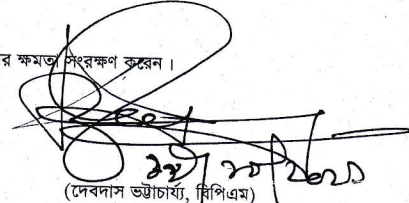 র ক্ষমতা সংরক্ষণ করেন।
(দেবদাস ভট্টাচার্য্য, বিপিএম)